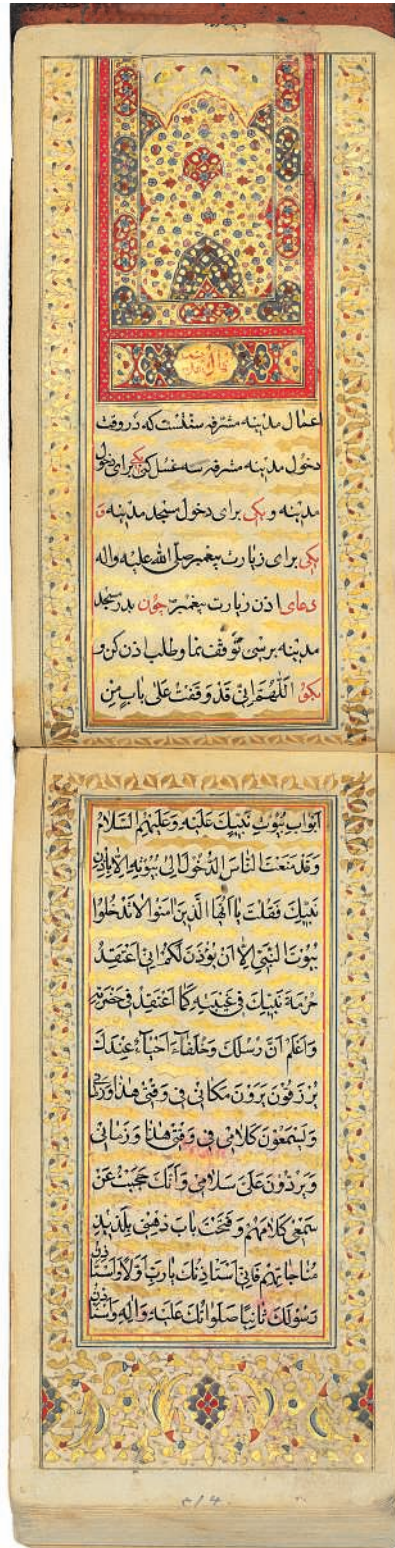 اعمال مدینه مشرفه سنتست که در وقت
دخول مدینه مشرفه سه غسل کنی یکی برای دخول
مدینه و یکی برای دخول مسجد مدینه و
یکی برای زیارت پیغمبر صلی الله علیه واله
دعای اذن زیارت پیغمبر چون بدر مسجد
مدینه برسی توقف نما و طلب اذن کن و
بگو اَللّٰهُمَّ اِنّی قَدْ وَقَفْتُ عَلٰی بابٍ مِنْ
اَبْوابِ بُیُوتِ نَبِیِّكَ عَلَیْهِ وَعَلَیْهِمُ السَّلامُ
وَقَدْ مَنَعْتَ النّاسَ الدُّخُولَ اِلٰی بُیُوتِهِ اِلّا بِاِذْنِ
نَبِیِّكَ فَقُلْتَ یا اَیُّهَا الَّذینَ امَنُوا لاتَدْخُلُوا
بُیُوتَ النَّبِیِّ اِلّا اَنْ یُؤْذَنَ لَکُمْ وَاِنّی اَعْتَقِدُ
حُرْمَةَ نَبِیِّكَ فی غَیْبَتِهِ کَما اَعْتَقِدُ فی حَضْرَتِهِ
وَاَعْلَمُ اَنَّ رُسُلَكَ وَخُلَفآءَكَ اَحْیآءٌ عِنْدَكَ
یُرْزَقُونَ یَرَوْنَ مَکانی فی وَقْتی هٰذا وَزَمانی
وَیَسْمَعُونَ کَلامی فی وَقْتی هٰذا وَزَمانی
وَیَرُدُّونَ عَلَیَّ سَلامی وَاَنَّكَ حَجَبْتَ عَنْ
سَمْعی کَلامَهُمْ وَفَتَحْتَ بابَ ذِهْنی بِلَذیذِ
مُناجاتِهِمْ فَاِنّی اَسْتَاْذِنُكَ یارَبِّ اَوَّلًا وَاَسْتَاْذِنُ
رَسُولَكَ ثانِیًا صَلَواتُكَ عَلَیْهِ وَالِهِ وَاَسْتَاْذِنُ